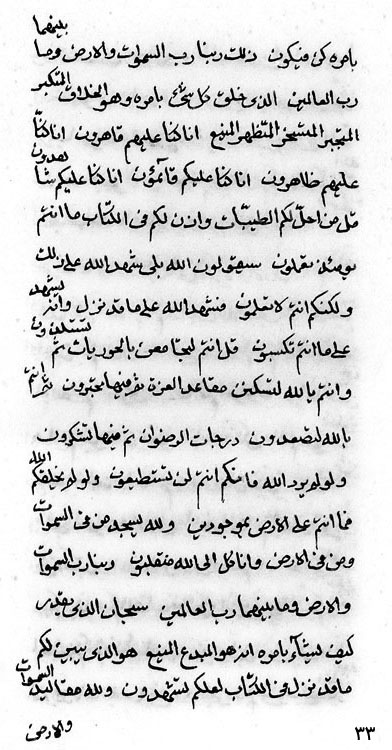 بينهما
بامره كن فيكون ذلك ربنا رب السموات والارض وما
رب العالمين الذى خلق كل شئ بامره وهو الخلاق المتكبر
المتجبر المتسخر المتظهر المنيع اناكنا عليهم قاهرون اناكنا
عليهم ظاهرون اناكنا عليكم قائمون اناكنا عليكم شاهدون
قل من احل لكم الطيبات واذن لكم فى الكتاب ما انتم
يومئذ تعملون سيقولون الله بلى شهد الله على ذلك
ولكنكم انتم لا تعلمون فنشهد الله على ما قد نزل وانتم تشهد
على ما انتم تكسبون قل انتم بالحوريات ثم تستلذون
وانتم بالله لتسكنن مقاعد العزة ثم فيها تحبرون ثم انتم
بالله لتصعدون درجات الرضوان ثم فيها لتشكرون
ولو لم يرد الله فانكم انتم لن تستطيعون ولو لم يخلقكم الله
فما انتم على الارض بموجودين ولله يسجد من فى السموات
ومن فى الارض وانا كل الى الله منقلبون ربنا رب السموات
والارض وما بينهما رب العالمين سبحان الذى يقدر
كيف يشآء بامره انه هو المبدع المنيع هو الذى يبين لكم
ما قد نزل فى الكتاب لعلكم تشهدون ولله مقاليد السموات
والارض
٣٣